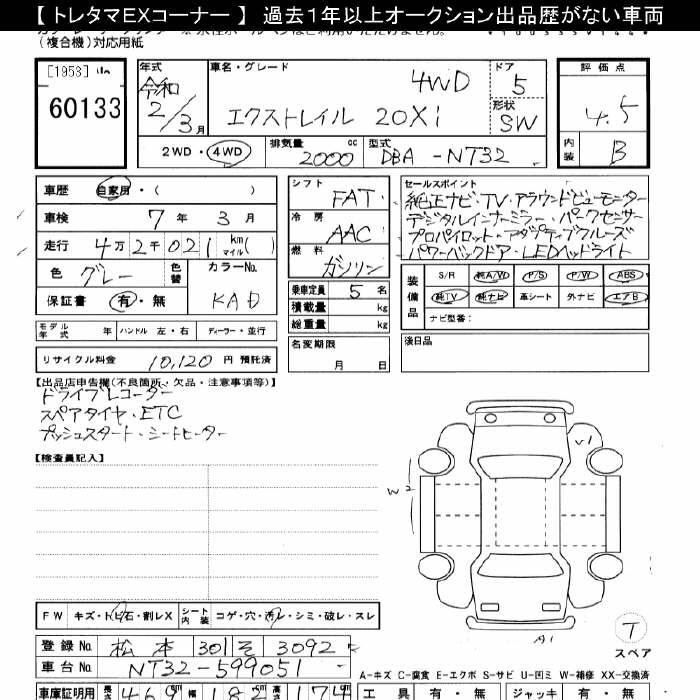 【 トレタマEXコーナー 】 過去1年以上オークション出品歴がない車両
(複合機)対応用紙
[1953] 山
60133
年式
令和
2/3月
車名・グレード
4WD
エクストレイル 20Xi
ドア
5
形状
SW
評価点
4.5
内装
B
2WD・4WD
排気量
2000 cc
型式
DBA-NT32
車歴
自家用・( )
車検
7年 3月
走行
4万2千021 km マイル( )
色
グレー
色替
カラーNo.
KAD
保証書
有・無
モデル年式 年
ハンドル 左・右
ディーラー・並行
リサイクル料金 10,120 円 預託済
シフト
FAT
冷房
AAC
燃料
ガソリン
乗車定員 5 名
積載量 kg
総重量 kg
名変期限
月 日
セールスポイント
純正ナビ・TV・アラウンドビューモーター
デジタルインナーミラー・パークセンサー
プロパイロット・アダプティブクルーズ
パワーバックドア・LEDヘッドライト
装備品
S/R 純A/W P/S P/W ABS
純TV 純ナビ 革シート 外ナビ エアB
ナビ型番:
後日品
【出品店申告欄(不良箇所・欠品・注意事項等)】
ドライブレコーダー
スペアタイヤ・ETC
プッシュスタート・シートヒーター
【検査員記入】
W2
V1
A1
T
スペア
FW キズ・トビ石・割レX
シート内装 コゲ・穴・汚レ・シミ・破レ・スレ
登録No. 松本 301 そ 3092
車台No. NT32-599051
A-キズ C-腐食 E-エクボ S-サビ U-凹ミ W-補修 XX-交換済
車庫証明用 長さ 469 幅 182 高さ 174
工具 有・無 ジャッキ 有・無